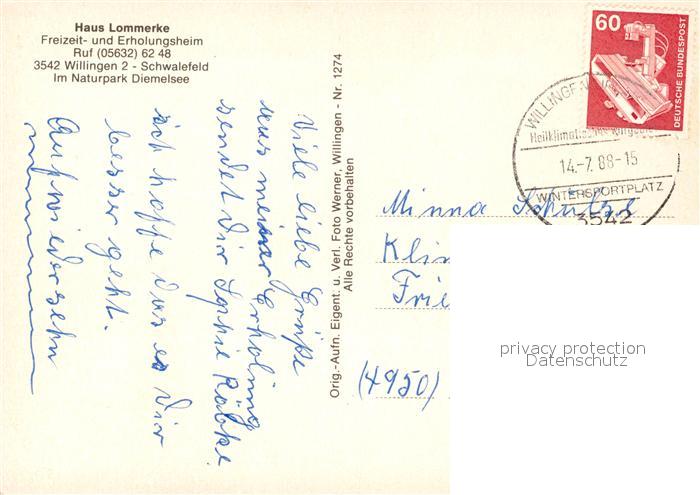 Haus Lommerke
Freizeit- und Erholungsheim
Ruf (05632) 62 48
3542 Willingen 2 - Schwalefeld
Im Naturpark Diemelsee
Viele liebe Grüße
aus meiner Erholung
sendet Dir Sophie
ich hoffe das es Dir
besser geht.
Auf wiedersehn
Orig.-Aufn. Eigent. u. Verl. Foto Werner, Willingen - Nr. 1274
Alle Rechte vorbehalten
60
DEUTSCHE BUNDESPOST
WILLINGEN
Heilklimatischer
14.-7.88-15
WINTERSPORTPLATZ
3542
Minna Schulze
Klin
Frie
(4950)
privacy protection
Datenschutz